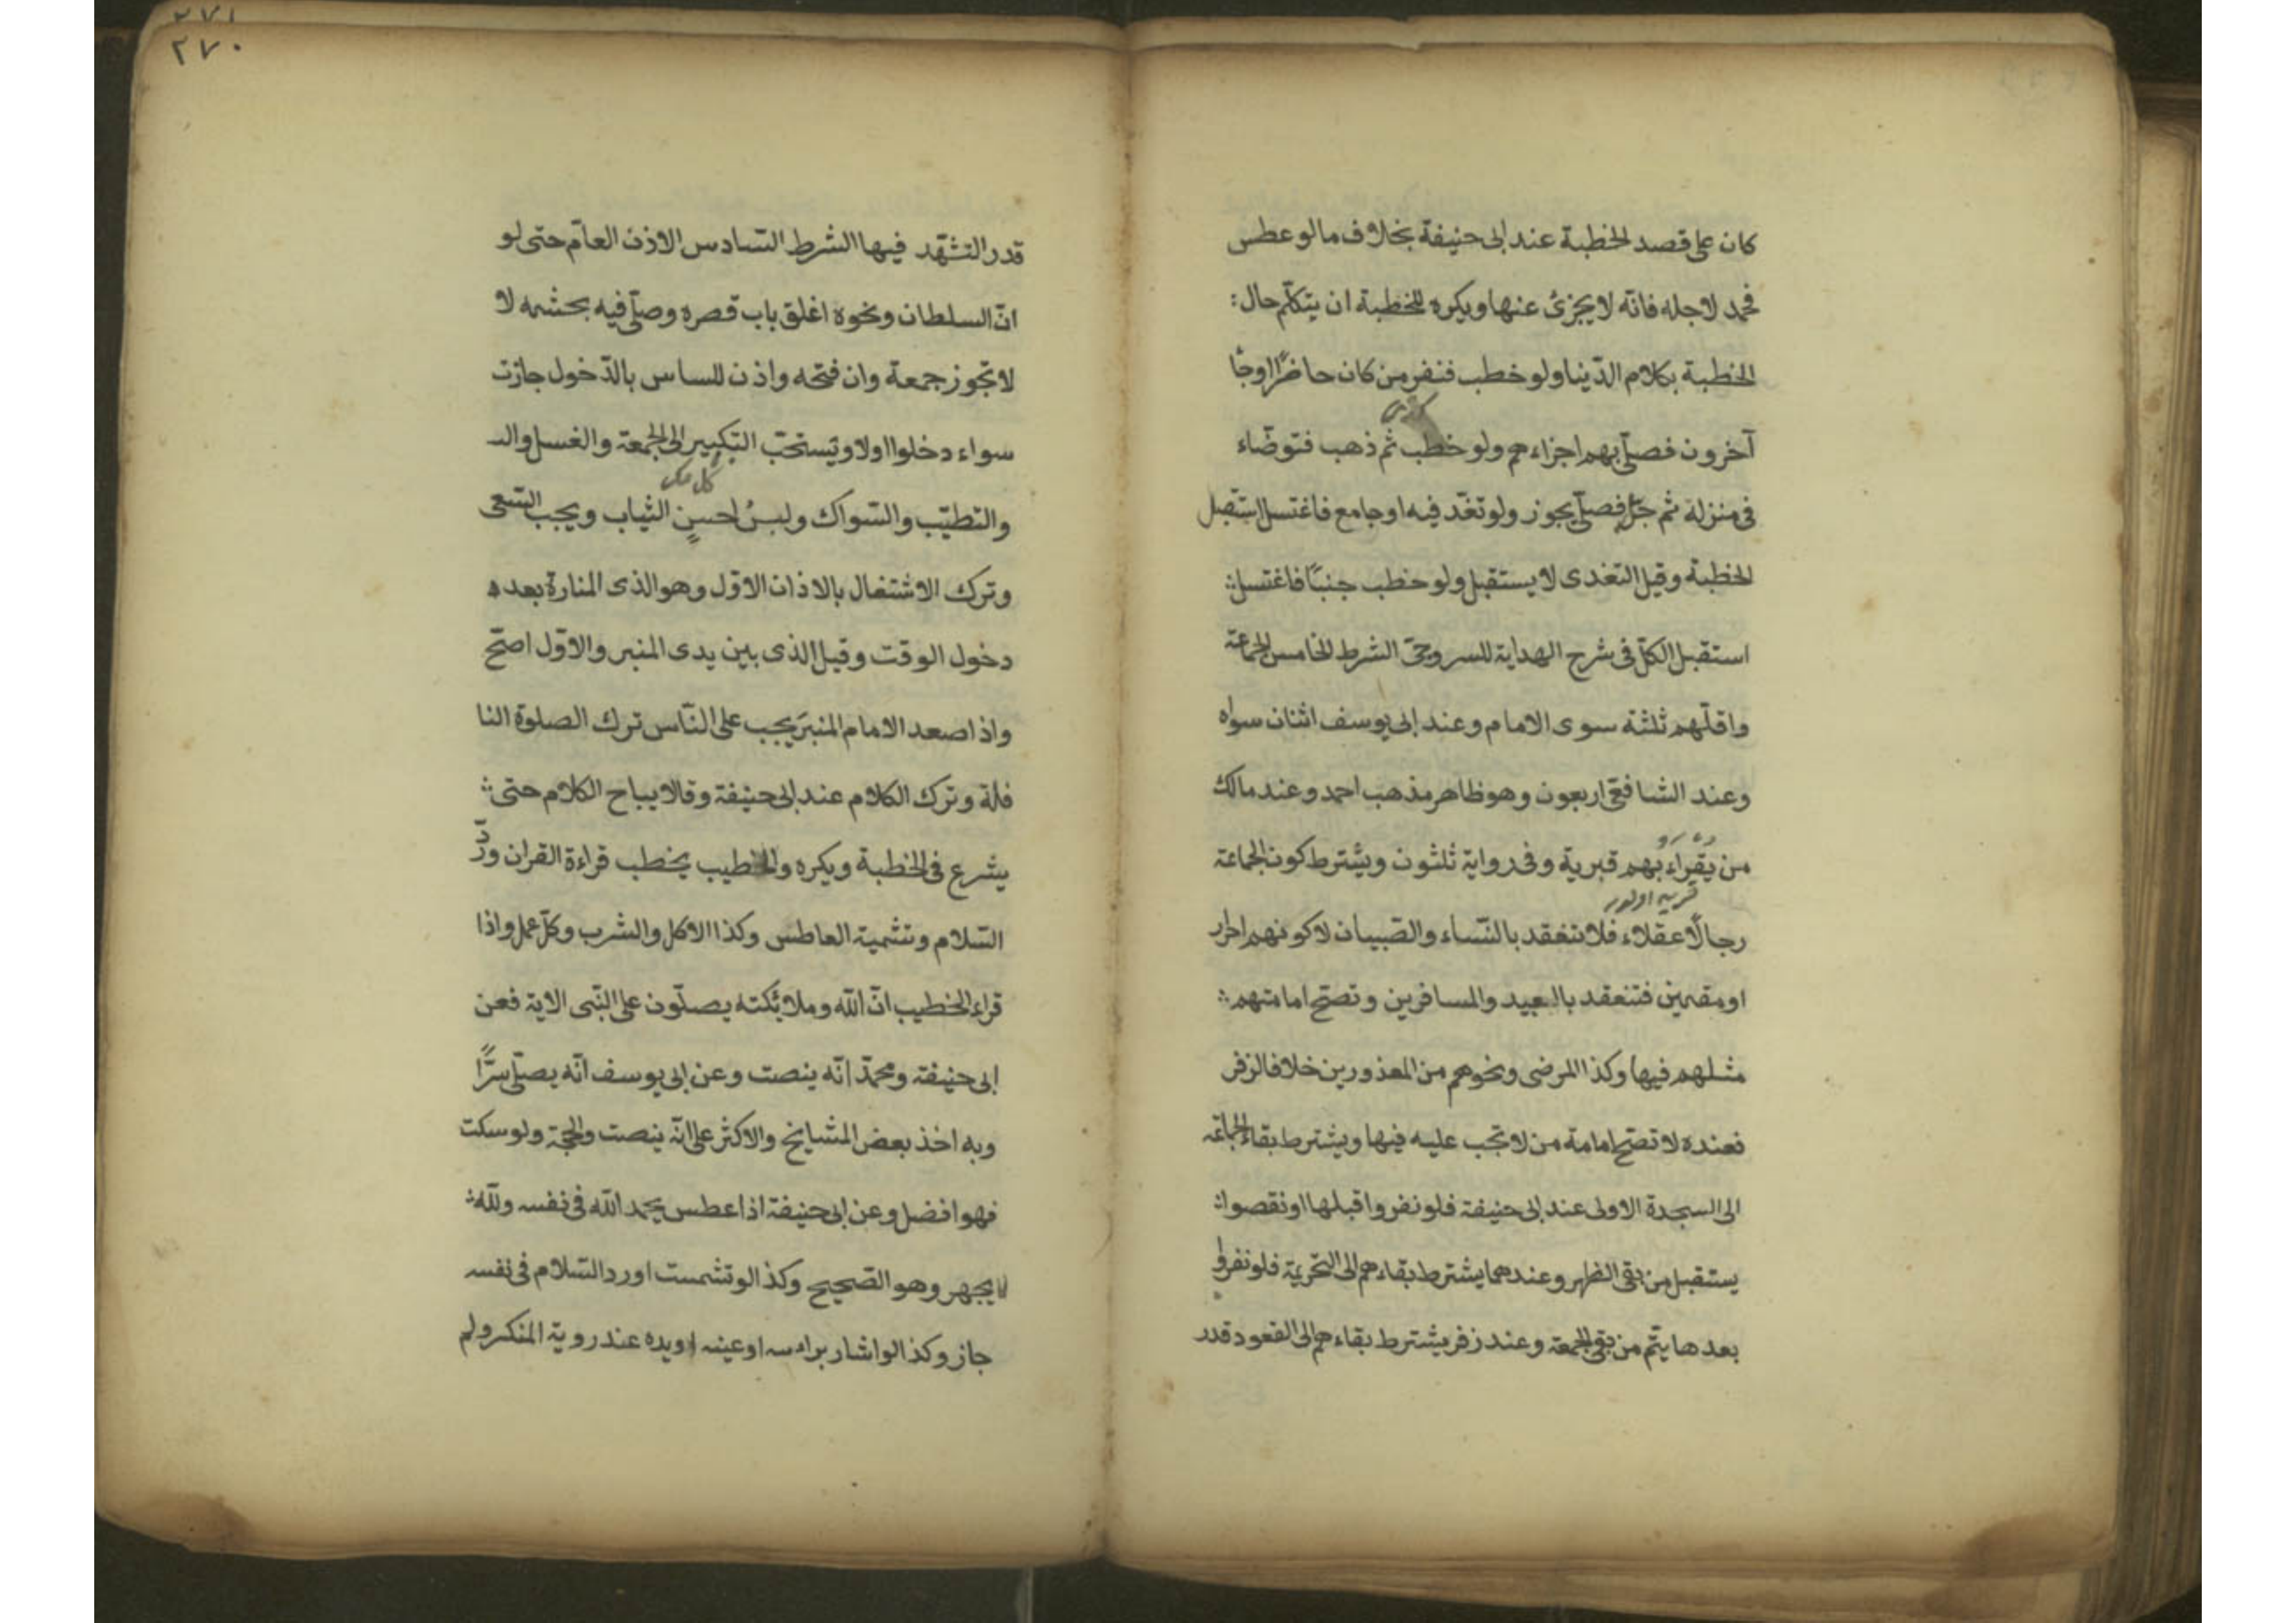 كان على قصد الخطبة عند ابى حنيفة بخلاف ما لو عطس
فحمد لاجله فانّه لا يجزئ عنها ويكره للخطبة ان يتكلّم حال :
الخطبة بكلام الدّينا ولو خطب فنفر من كان حاضرًا وجًا
آخرون فصلّى بهم اجزاءهم ولو خطب ثم ذهب فتوضّاء
فى منزله ثم جّل فصلّى يجوز ولو تغدّ فيه او جامع فاغتسل استقبل
الخطبة وقيل التغدى لا يستقبل ولو خطب جنبًا فاغتسل :
استقبل الكلّ فى شرح الهداية للسروجىّ الشرط الخامس الجماعة
واقلّهم ثلثة سوى الامام وعند ابى يوسف اثنان سواه
وعند الشافعىّ اربعون وهو ظاهر مذهب احمد وعند مالك
من يقراء بهم قبرية وفى رواية ثلثون ويشترط كون الجماعة
قريه اولور
رجالًا عقلاء فلا تنعقد بالنّساء والصّبيان لا كونهم احرار
او مقيمين فتنعقد بالعبيد والمسافرين وتصحّ امامتهم :
مثلهم فيها وكذا المرضى ونحوهم من المعذورين خلافا لزفر
فعنده لا تصحّ امامة من لا تجب عليه فيها ويشترط بقاء الجماعة
الى السجدة الاولى عند ابى حنيفة فلو نفروا قبلها او نقصوا :
يستقبل من بقى الظهر وعندهما يشترط بقاءهم الى التحريمة فلو نفروا
بعدها يتمّ من بقى الجمعة وعند زفر يشترط بقاءهم الى القعود قدر
٢٧١
٢٧٠
قدر التشهّد فيها الشرط السّادس الاذن العامّ حتى لو
انّ السلطان ونحوه اغلق باب قصره وصلّى فيه بحشمه لا
لا تجوز جمعة وان فتحه واذن للساس بالدّخول جازت
سواء دخلوا اولا ويستحبّ التبكير الى الجمعة والغسل والـ
والتطيّب والسّواك ولبسُ احسنِ الثياب ويجب السّعى
وترك الاشتغال بالاذان الاوّل وهو الذى المنارة بعد ه
دخول الوقت وقيل الذى بين يدى المنبر والاوّل اصحّ
واذا صعد الامام المنبرَ يجب على النّاس ترك الصلوة النا
فلة وترك الكلام عند ابى حنيفة وقالا يباح الكلام حتى :
يشرع فى الخطبة ويكره والخطيب يخطب قراءة القران وردّ
السّلام وتشميت العاطس وكذا الاكل والشرب وكلّ عمل واذا
قراء الخطيب انّ اللّه وملائكته يصلّون على النّبى الاية فعن
ابى حنيفة ومحمّد انّه ينصت وعن ابى يوسف انّه يصلّى سرًّا
وبه اخذ بعض المشايخ والاكثر على انّه ينصت والحجة ولو سكت
فهو افضل وعن ابى حنيفة اذا عطس يحمد اللّه فى نفسه وللّه :
لا يجهر وهو الصّحيح وكذا لو تشمست او رد السّلام فى نفسه
جاز وكذا لو اشار براسه او عينه او يده عند روية المنكر ولم